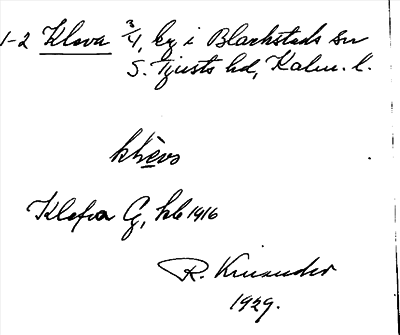 1-2 Kleva 3/4, by i Blackstads sn
S. Tjusts hd, Kalm. l.
Klefva G, hb 1916
R. Kinander
1929.